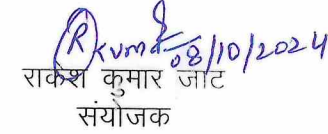 R Kumar 08/10/2024
राकेश कुमार जाट
संयोजक